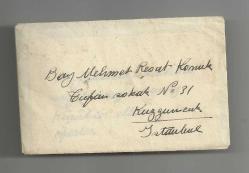 Bay Mehmet Reşat
sokak No 31
Kuzguncuk
İstanbul